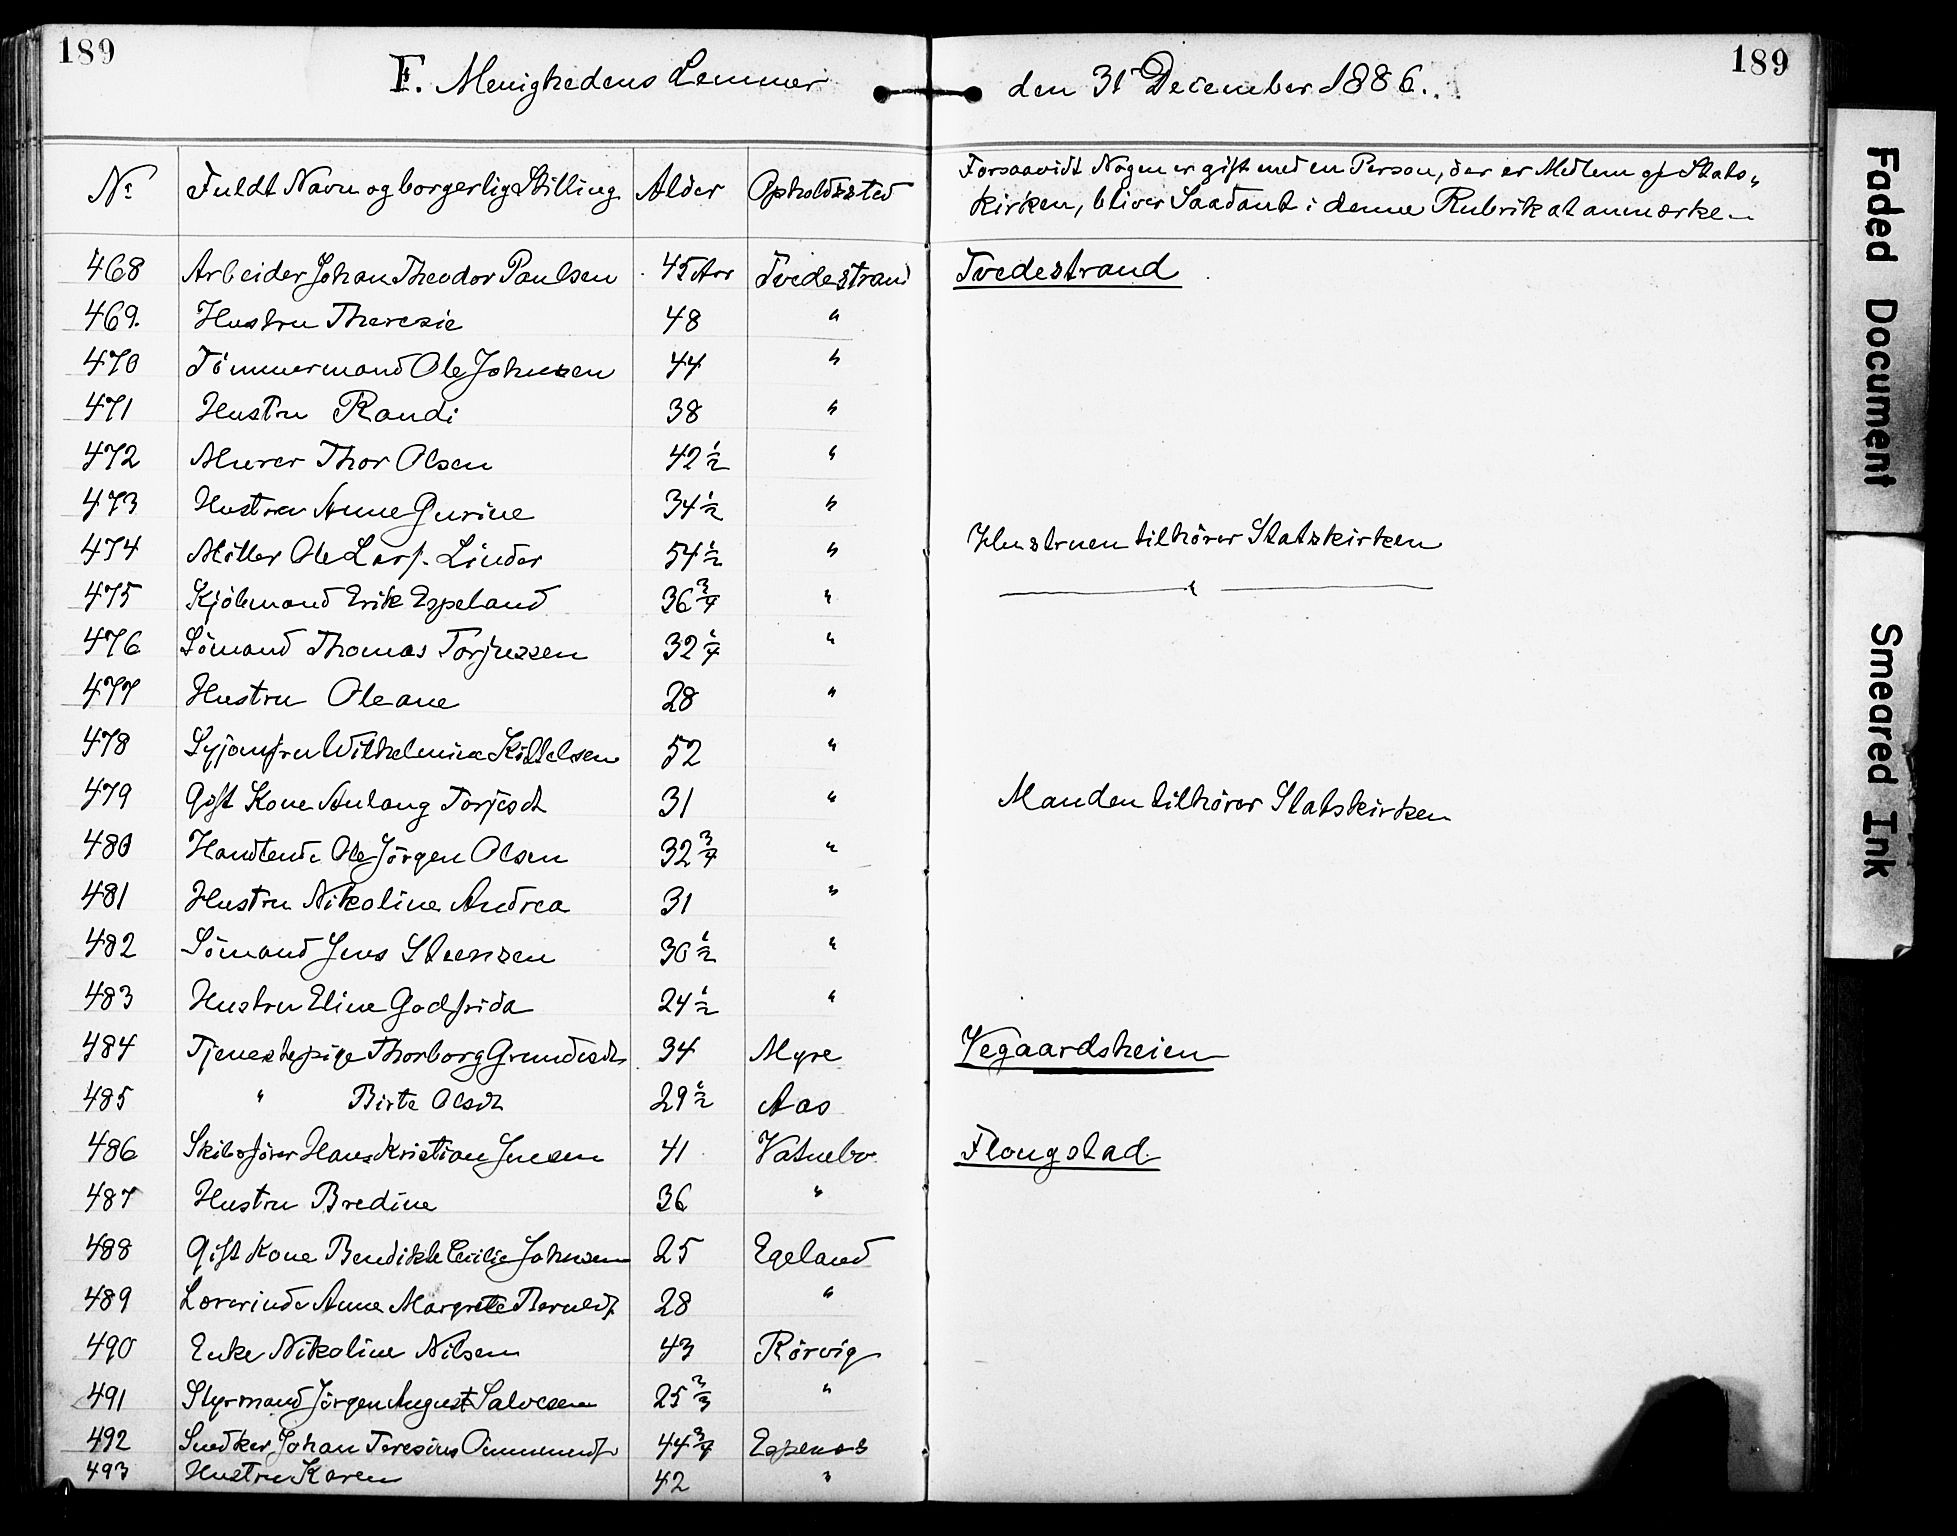 189
189
F. Menighedens Lemmer den 31 December 1886.
No Fuldt Navn og borgerlig Stilling Alder Opholdssted Forsaavidt Nogen er gift med en Person, der er Medlem af Stats„
kirken, bliver Saadant i denne Rubrik at anmærke
468 Arbeider Johan Theodor Paulsen 45 Aar Tvedestrand Tvedestrand
469. Hustru Theresie 48 "
470 Tömmermand Ole Johnsen 44 "
471 Hustru Randi 38 "
472 Murer Thor Olsen 42 1/2 "
473 Hustru Anne Gurine 34 1/2 "
474 Möller Ole Lars. Linder 54 1/2 " Hustruen tilhörer Statskirken
475 Kjöbmand Erik Espeland 36 3/4 " "
476 Sömand Thomas Torjussen 32 1/4 "
477 Hustru Oleane 28 "
478 Syjomfru Wilhelmine Kittelsen 52 "
479 Gift Kone Anlaug Torjesdt 31 " Manden tilhörer Statskirken
480 Handlende Ole Jörgen Olsen 32 3/4 "
481 Hustru Nikoline Andrea 31 "
482 Sömand Jens Steensen 30 1/2 "
483 Hustru Eline Godfrida 24 1/2 "
484 Tjenestepige Thorborg 34 Myre Vegaardsheien
485 " Birte Olsdt 29 1/2 Aas
486 Skibsförer Hans Kristian Jensen 41 Vatnebo Flangstad
487 Hustru Bredine 36 "
488 Gift Kone Bendikte Cecilie Johnsen 25 Egeland
489 Lærerinde Anne Margrete 28 "
490 Enke Nikoline Nilsen 43 Rörvig
491 Styrmand Jörgen August Salvesen 25 2/3 "
492 Snedker Johan Teresius 44 3/4 Espenes
493 Hustru Karen 42 "
Faded Document
Smeared Ink